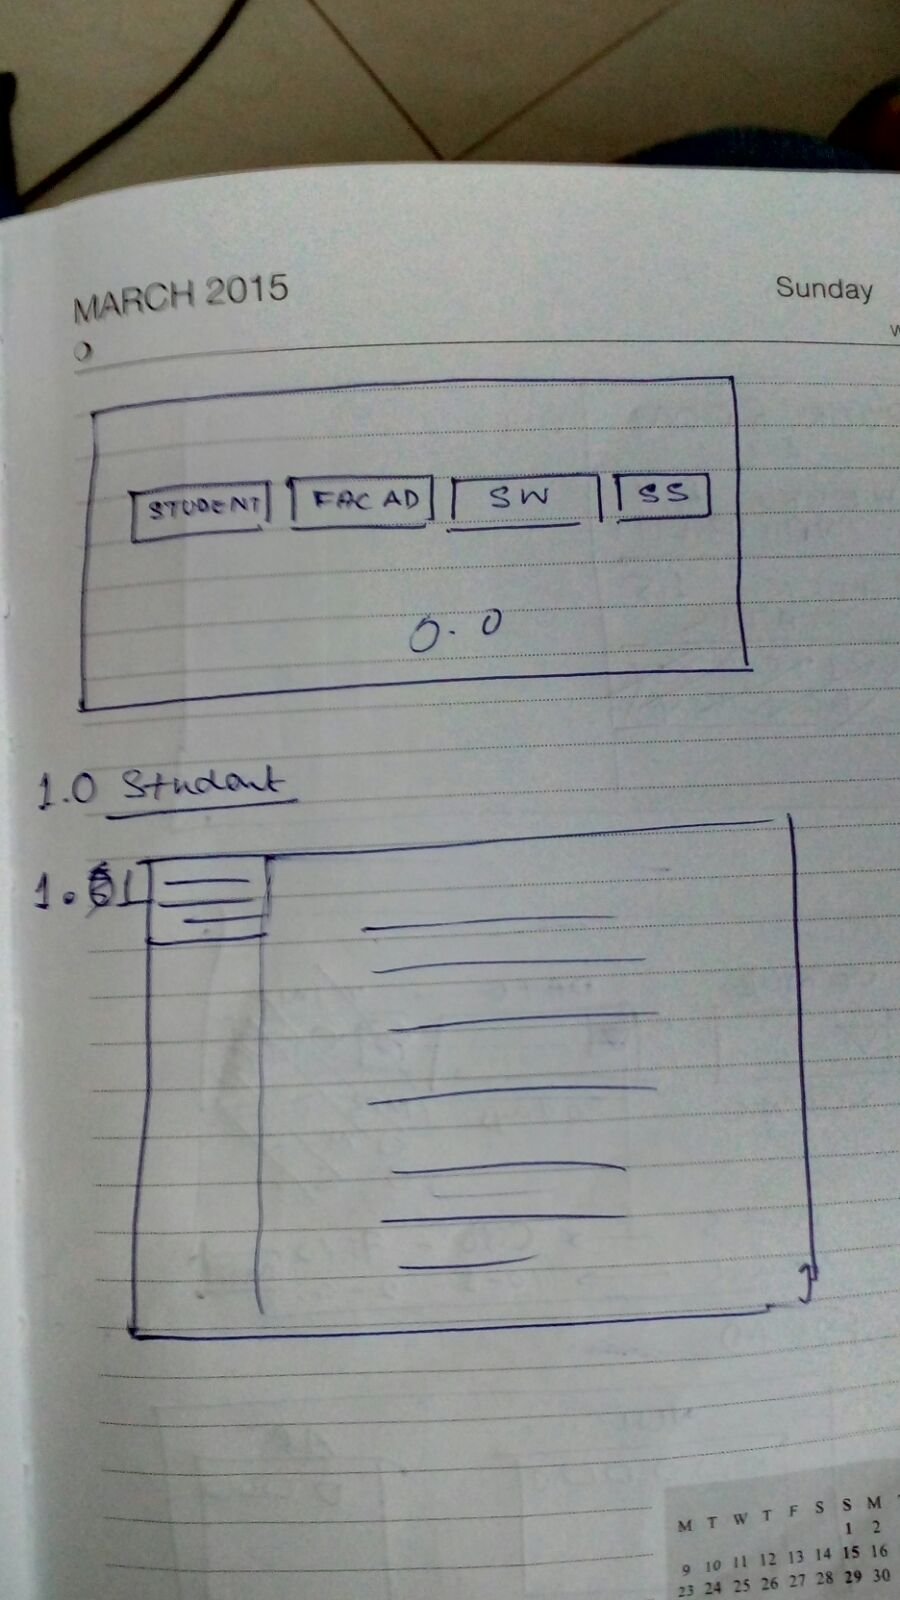 MARCH 2015
Sunday
STUDENT FAC AD SW SS
0.0
1.0 Student
M T W T F S S M
1 2
9 10 11 12 13 14 15 16
23 24 25 26 27 28 29 30